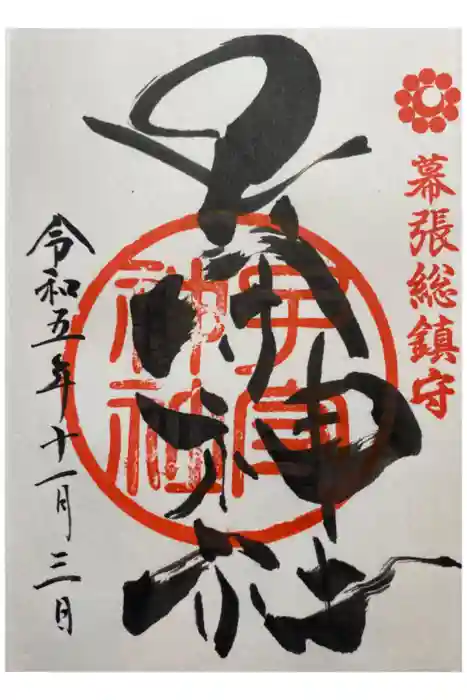 幕張総鎮守
子守神社
子守神社
令和五年十一月三日